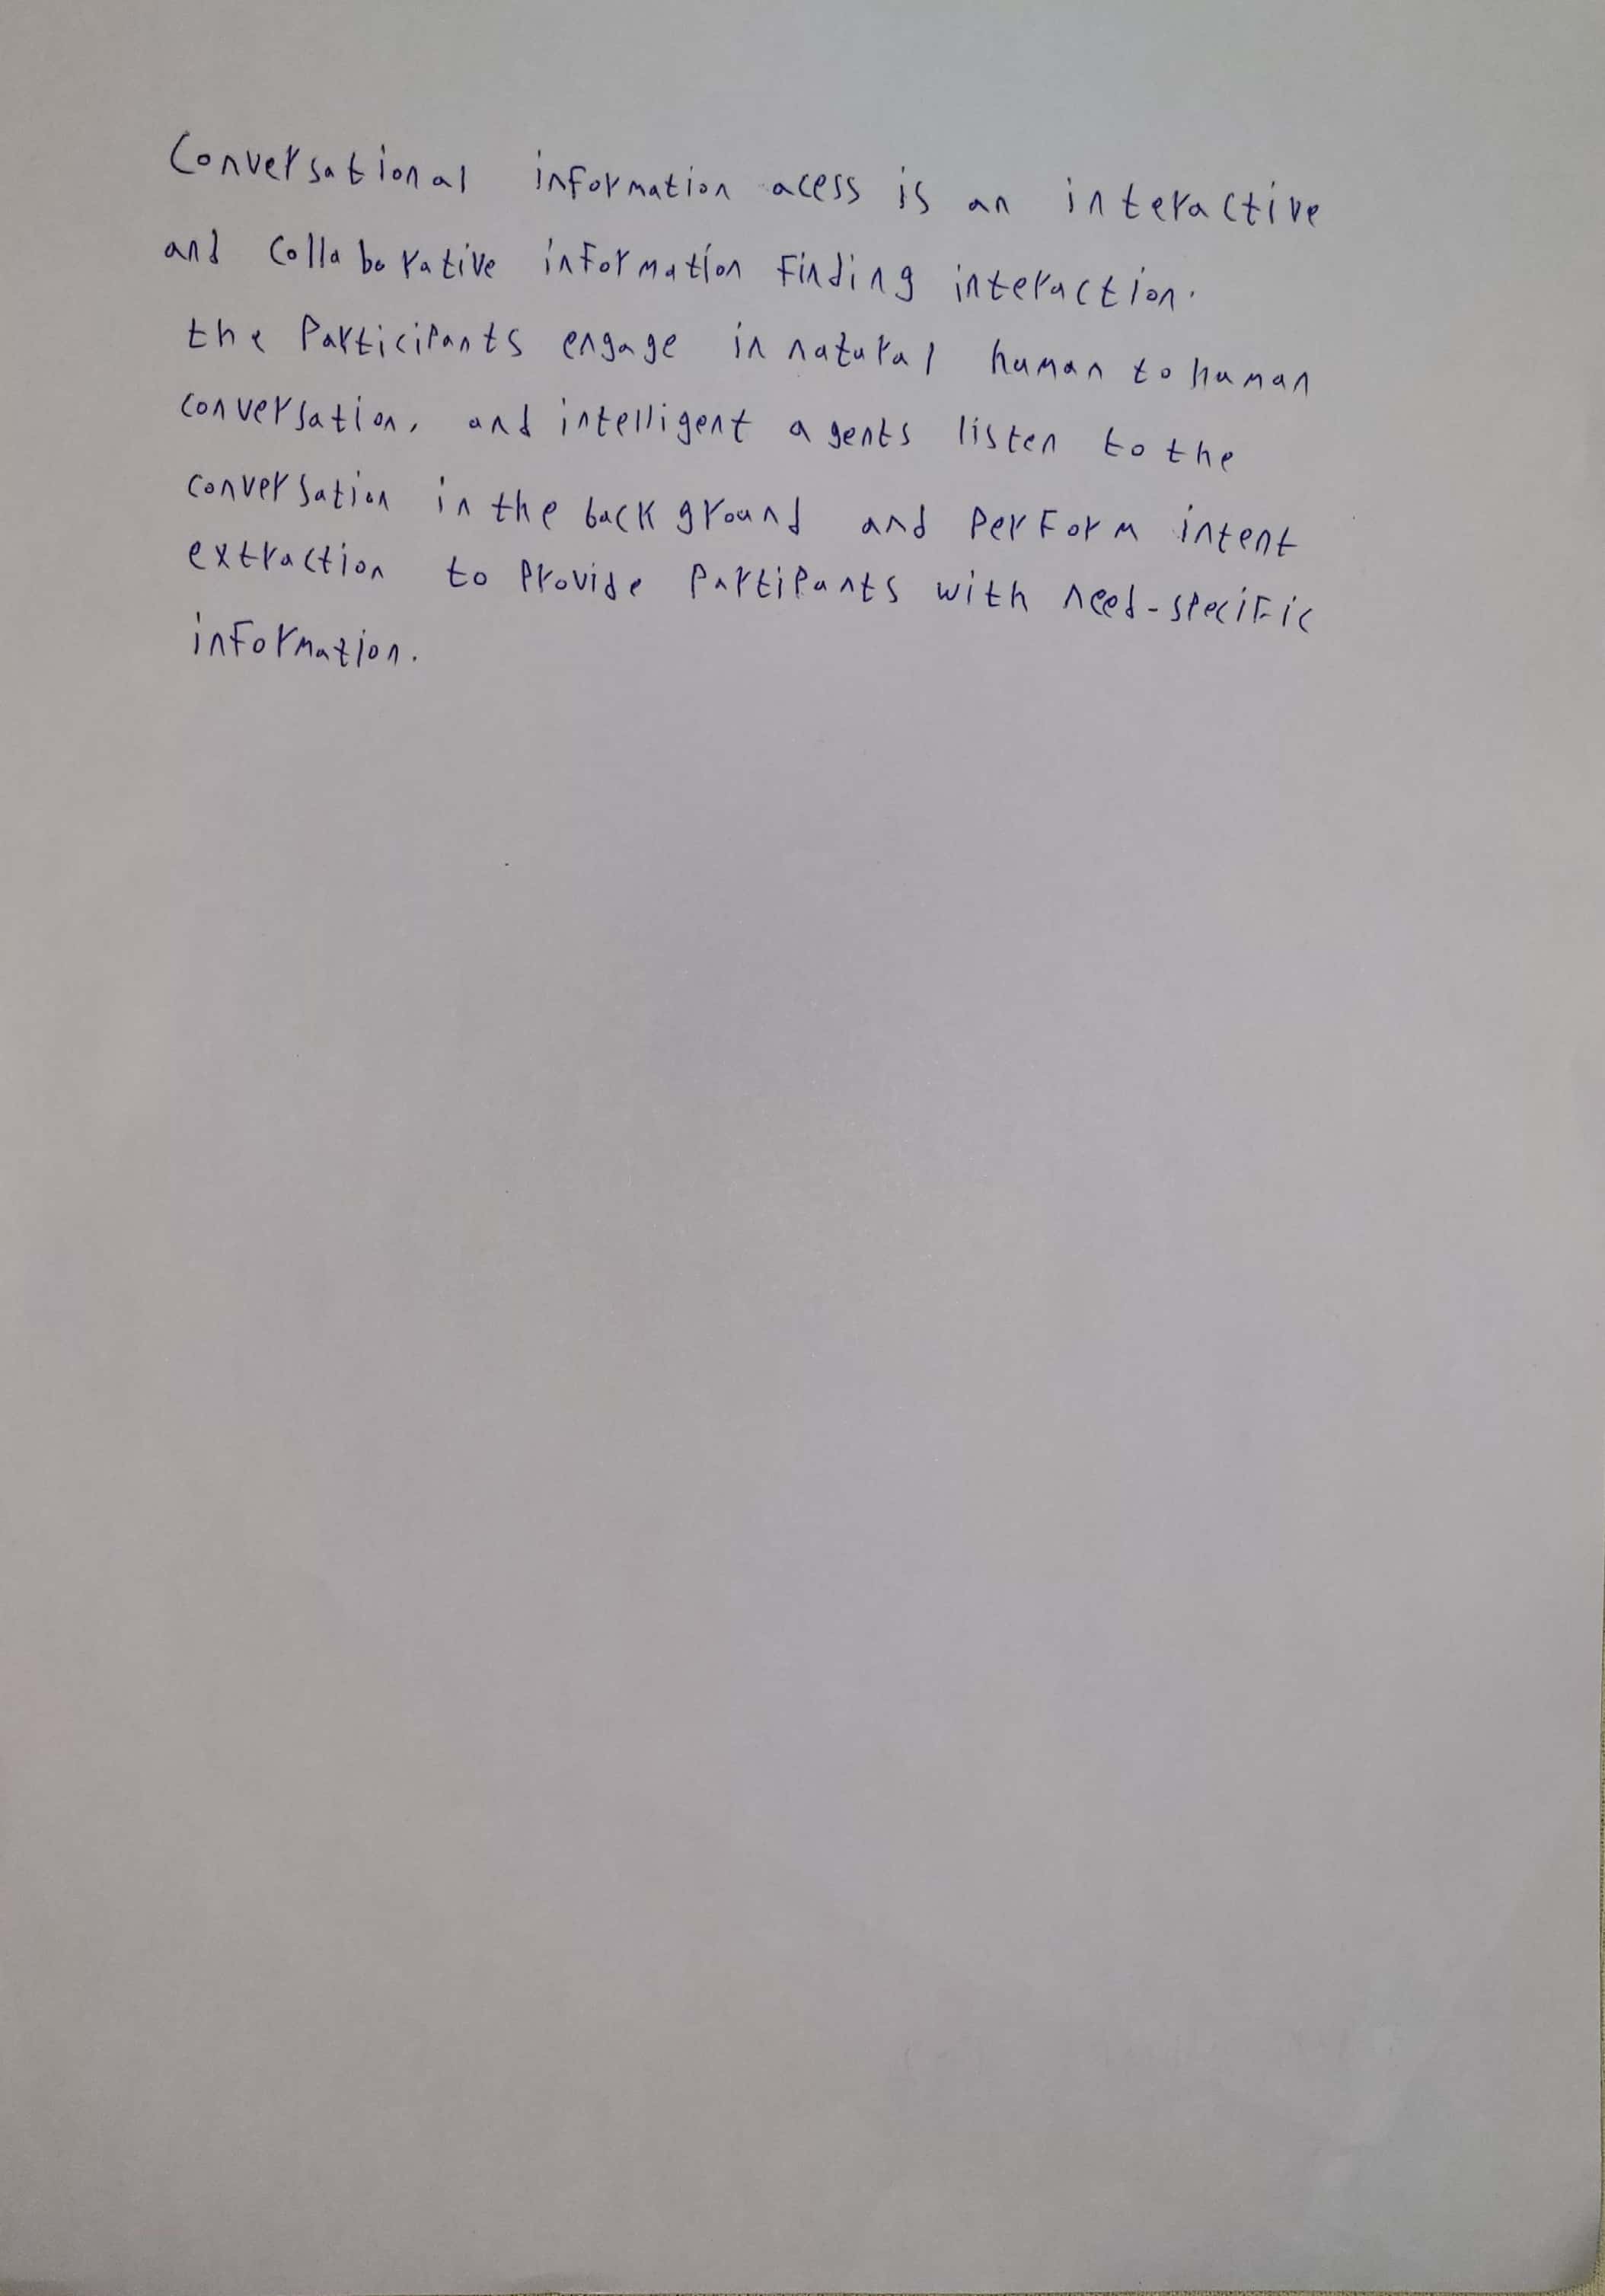 Conversational information acess is an interactive
and collaborative information finding interaction.
the Participants engage in natural human to human
conversation, and intelligent agents listen to the
conversation in the background and perform intent
extraction to provide Partipants with need-specific
information.